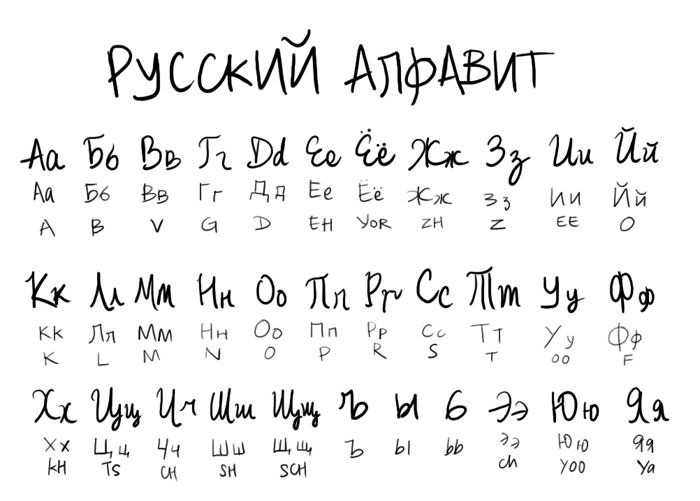 РУССКИЙ АЛФАВИТ
Аа Бб Вв Гг Dd Ее Ёё Жж Зз Ии Йй
Аа Бб Вв Гг Дд Ее Ёё Жж Зз Ии Йй
A B V G D EH YOR ZH Z EE O
Кк Лл Мм Нн Оо Пп Рр Сс Тт Уу Фф
Кк Лл Мм Нн Оо Пп Рр Сс Тт Уу Фф
K L M N O P R S T OO F
Хх Цц Чч Шш Щщ Ъ Ы Ь Ээ Юю Яя
Хх Цц Чч Шш Щщ Ъ Ы ЬЬ Ээ Юю Яя
KH TS CH SH SCH ch YOO Ya